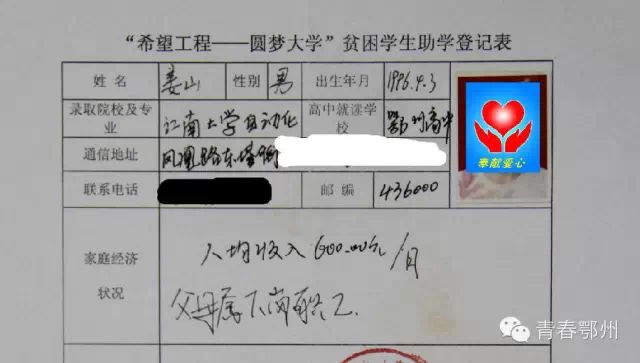 “希望工程——圆梦大学”贫困学生助学登记表
姓 名 姜山 性别 男 出生年月 1996.4.3
录取院校及专业 江南大学自动化 高中就读学校 鄂州高中
通信地址 凤凰路东塔街
联系电话 邮 编 436000
家庭经济状况 人均收入600.00元/月
父母属下岗职工.
奉献爱心
青春鄂州